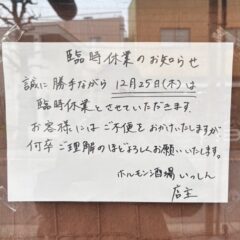 臨時休業のお知らせ
誠に勝手ながら 12月25日(木)は
臨時休業とさせていただきます。
お客様にはご不便をおかけいたしますが
何卒ご理解のほどよろしくお願いいたします。
ホルモン酒場 いっしん
店主